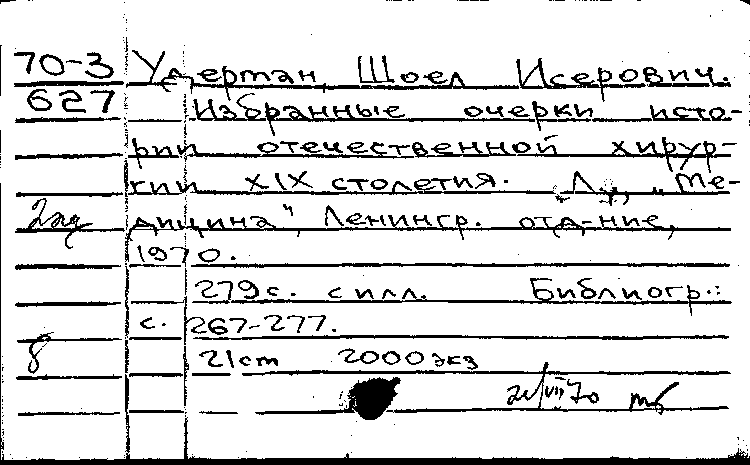 70-3 Удерман, Шоел Исерович.
627 Избранные очерки исто-
рии отечественной хирур-
гии XIX столетия. Л., "Ме-
2 экз дицина", Ленингр. отд-ние,
1970.
279 с. с илл. Библиогр.:
с. 267-277.
8 21 cm 2000 экз
VII 70